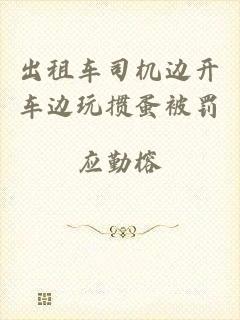 出租车司机边开
车边玩掼蛋被罚
应勤榕